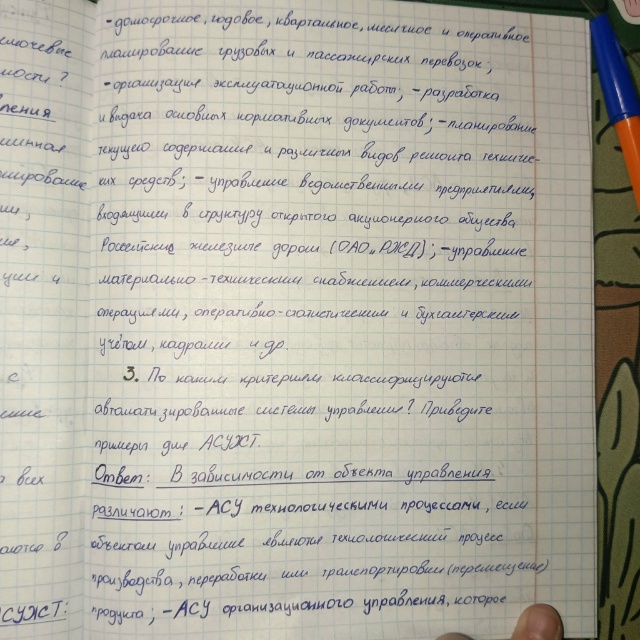 ключевые
мости?
ления
шинная
нирование
ми,
ние,
ции и
с
ение
о всех
аются в
СУЖТ:
-долгосрочное, годовое, квартальное, месячное и оперативное
планирование грузовых и пассажирских перевозок;
-организация эксплуатационной работы; -разработка
и выдача основных нормативных документов; -планирование
текущего содержания и различных видов ремонта техничес-
ких средств; -управление ведомственными предприятиями,
входящими в структуру открытого акционерного общества
Российские железные дороги (ОАО „РЖД); -управление
материально-техническим снабжением, коммерческими
операциями, оперативно-статистическим и бухгалтерским
учётом, кадрами и др.
3. По каким критериям классифицируются
автоматизированные системы управления? Приведите
примеры для АСУЖТ.
Ответ: В зависимости от объекта управления
различают: -АСУ технологическими процессами, если
объектом управления является технологический процесс
производства, переработки или транспортировки (перемещение)
продукта; -АСУ организационного управления, которое